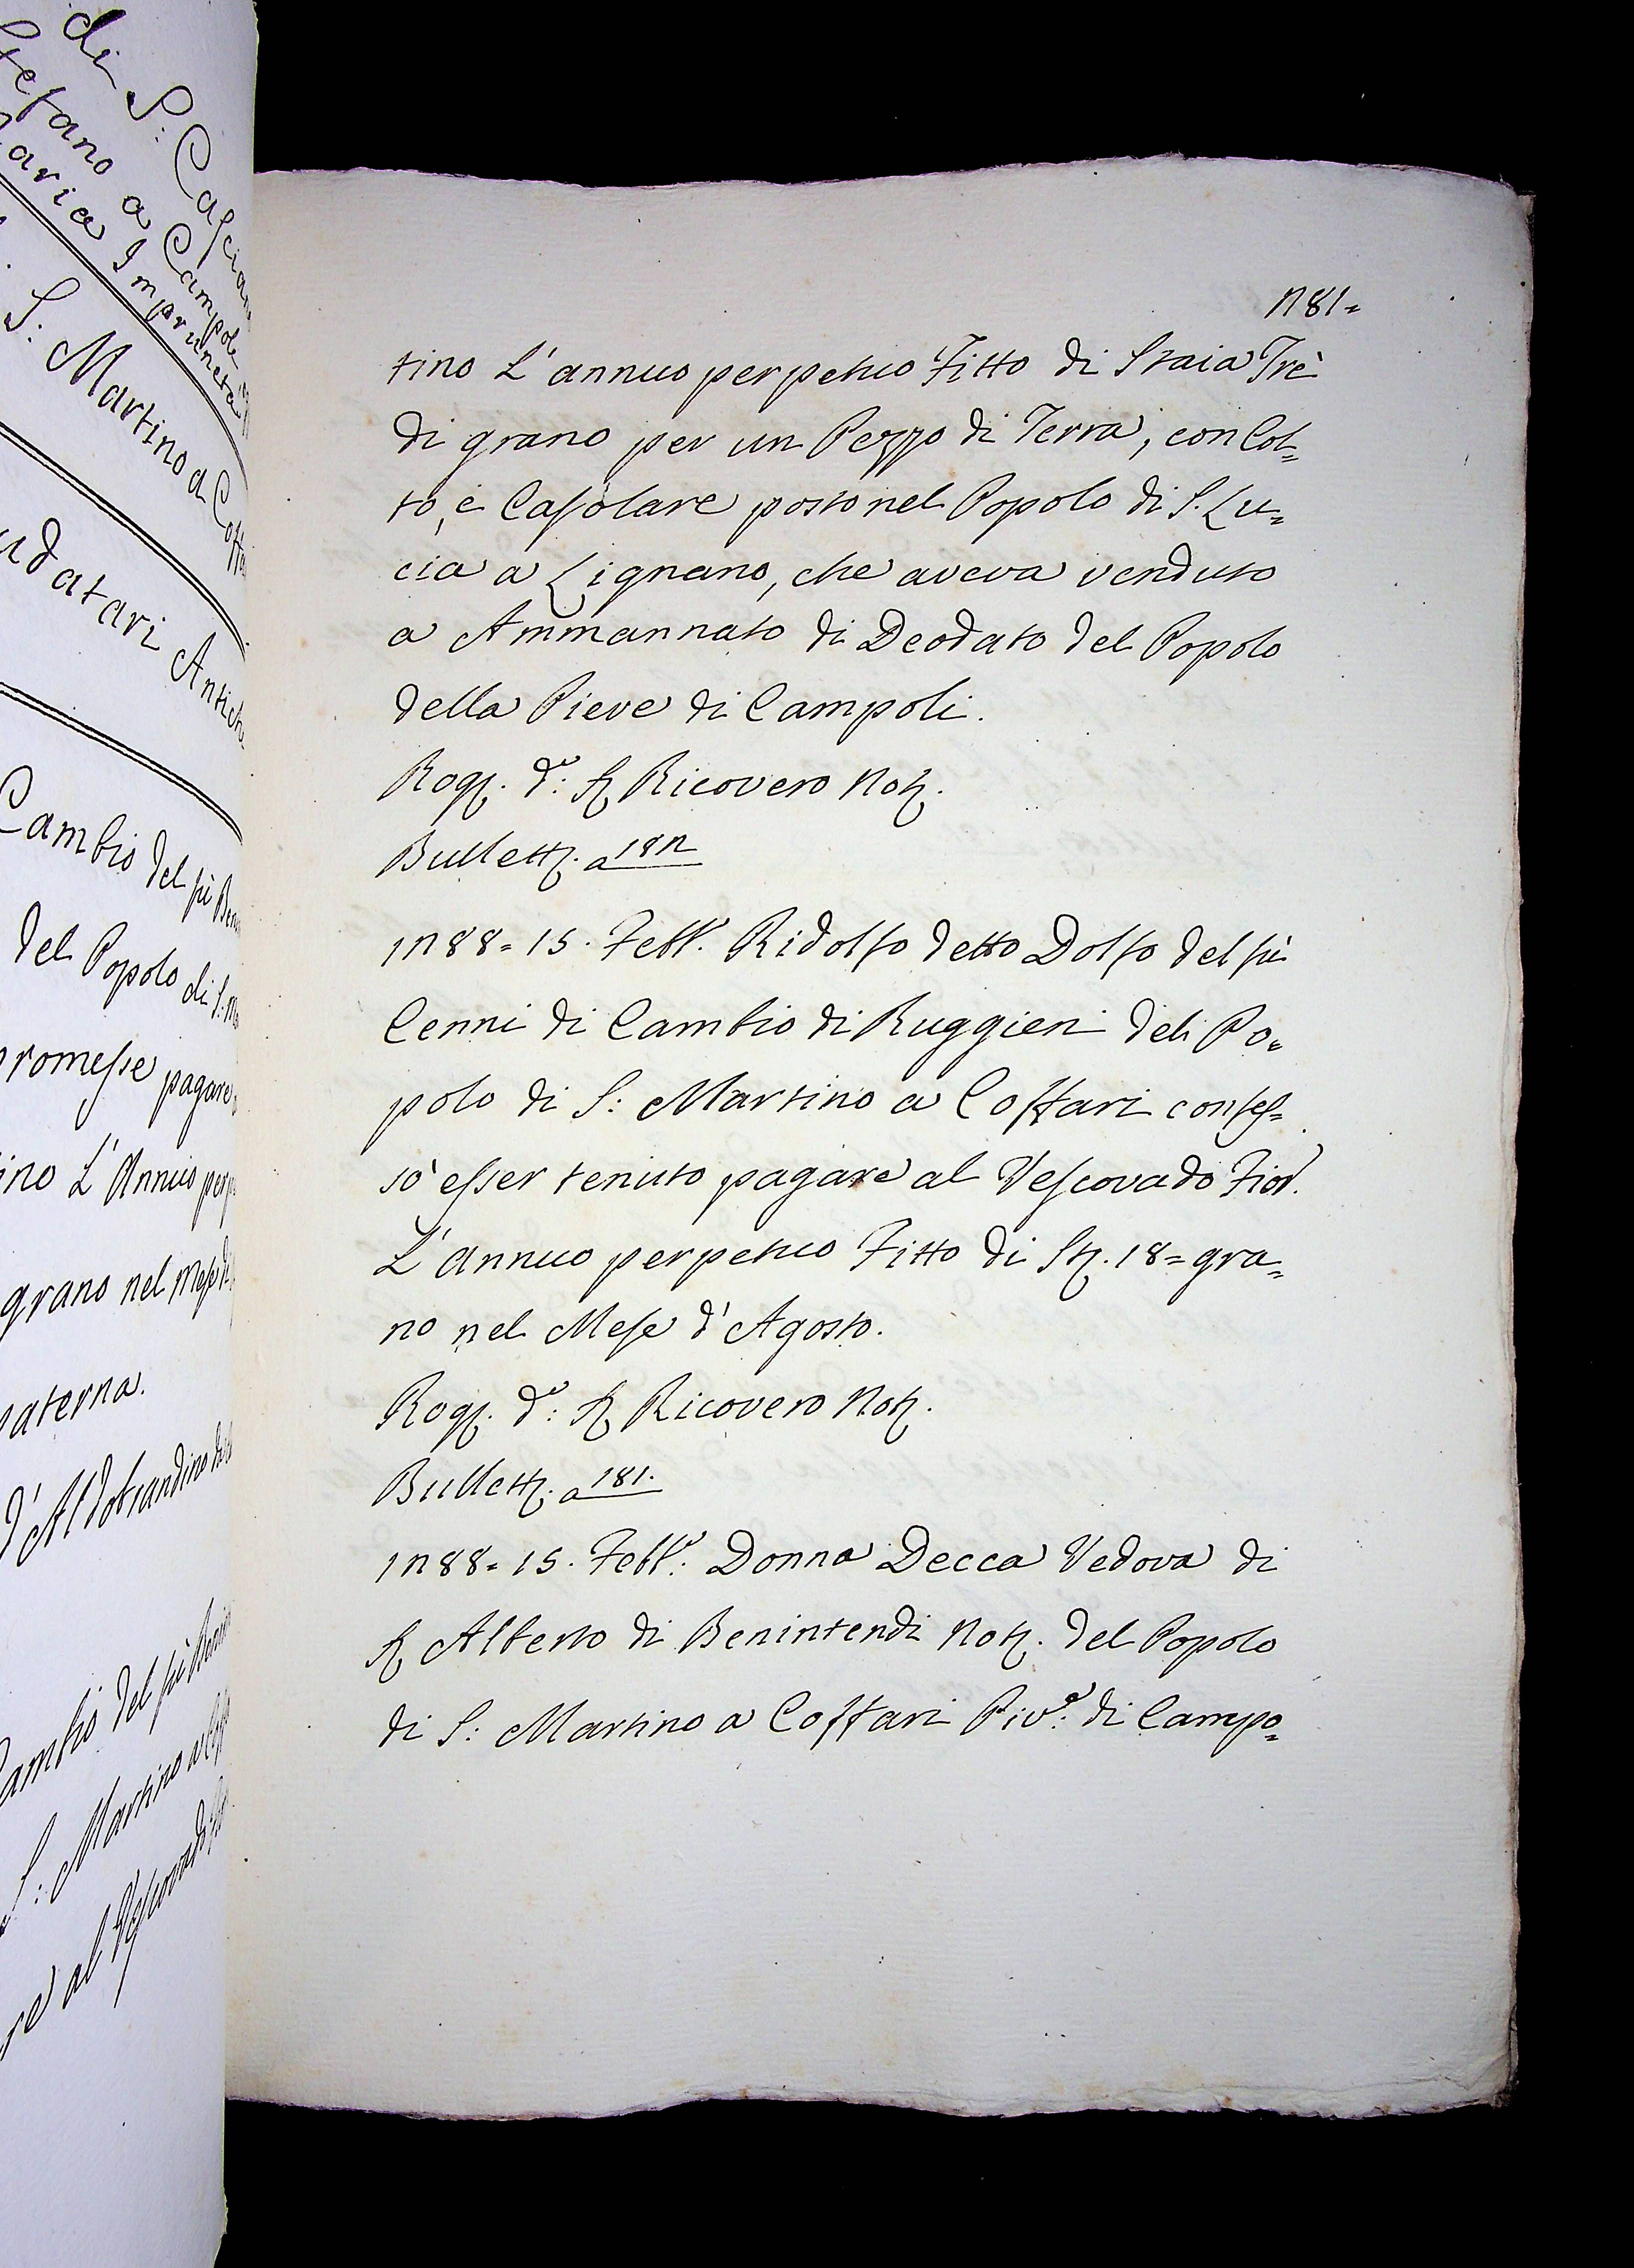 di S: Cascia
Stefano a Campoli
Maria Impruneta
S: Martino a Coff
udatari Antich
Cambio del fù Ben
del Popolo di S: M
romesse pagare
ino L'Annuo perp
grano nel Mese d
aterna.
d'Aldobrandino
Cambio del fù Beni
S: Martino a Coff
re al Vescovado
281=
tino L'annuo perpetuo Fitto di Staia Trè
di grano per un Pezzo di Terra, con Col=
to, e Casolare posto nel Popolo di S. Lu=
cia a Lignano, che aveva venduto
a Ammannato di Deodato del Popolo
della Pieve di Campoli.
Rog. d.o: Ser Ricovero Not.
Bullett. a 182
1288= 15. Febb.o Ridolfo detto Dolfo del fù
Cenni di Cambio di Ruggieri del Po=
polo di S: Martino a Coffari confes=
sò esser tenuto pagare al Vescovado Fior.o
L'annuo perpetuo Fitto di St. 18= gra=
no nel Mese d'Agosto.
Rog. d.o: Ser Ricovero Not.
Bullett. a 181.
1288= 15. Febb.o: Donna Decca Vedova di
Ser Alberto di Benintendi Not. del Popolo
di S: Martino a Coffari Piv.e: di Campo=